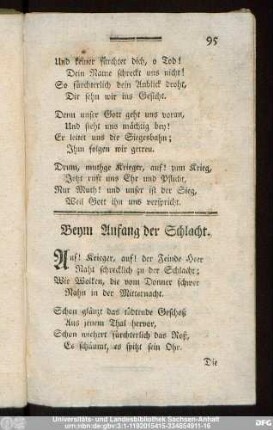 95
Und keiner fürchtet dich, o Tod!
Dein Name schreckt uns nicht!
So fürchterlich dein Anblick droht,
Dir sehn wir ins Gesicht.
Denn unser Gott geht uns voran,
Und steht uns mächtig bey!
Er leitet uns die Siegesbahn;
Ihm folgen wir getreu.
Drum, muthge Krieger, auf! zum Krieg,
Jetzt ruft uns Ehr und Pflicht,
Nur Muth! und unser ist der Sieg,
Weil Gott ihn uns verspricht.
Beym Anfang der Schlacht.
Auf! Krieger, auf! der Feinde Heer
Naht schrecklich zu der Schlacht;
Wie Wolken, die vom Donner schwer
Nahn in der Mitternacht.
Schon glänzt das tödtende Geschoß
Aus jenem Thal hervor,
Schon wiehert fürchterlich das Roß,
Es schäumt, es spitzt sein Ohr.
Die
Universitäts- und Landesbibliothek Sachsen-Anhalt
urn:nbn:de:gbv:3:1-1192015415-334654911-16
DFG